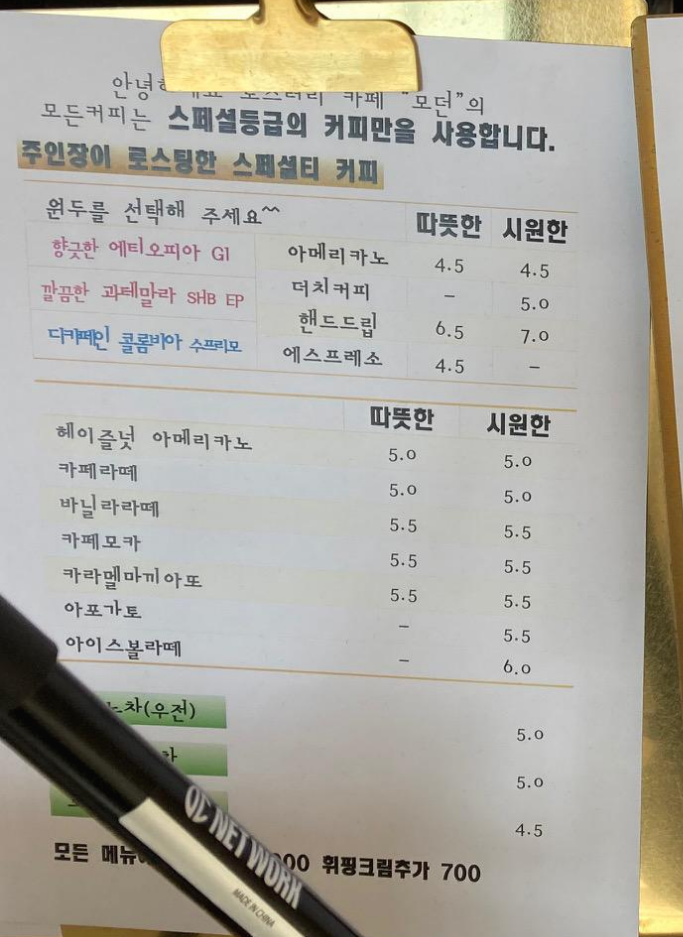 카페 "모던"의
모든커피는 스페셜등급의 커피만을 사용합니다.
주인장이 로스팅한 스페셜티 커피
원두를 선택해 주세요~~ 따뜻한 시원한
향긋한 에티오피아 G1 아메리카노 4.5 4.5
더치커피 - 5.0
깔끔한 과테말라 SHB EP
핸드드립 6.5 7.0
디카페인 콜롬비아 수프리모
에스프레소 4.5 -
따뜻한 시원한
헤이즐넛 아메리카노 5.0 5.0
카페라떼 5.0 5.0
바닐라라떼 5.5 5.5
카페모카 5.5 5.5
카라멜마끼아또 5.5 5.5
아포가토 - 5.5
아이스볼라떼 - 6.0
(우전) 5.0
5.0
4.5
모든 휘핑크림추가 700
QC NETWORK
MADE IN CHINA